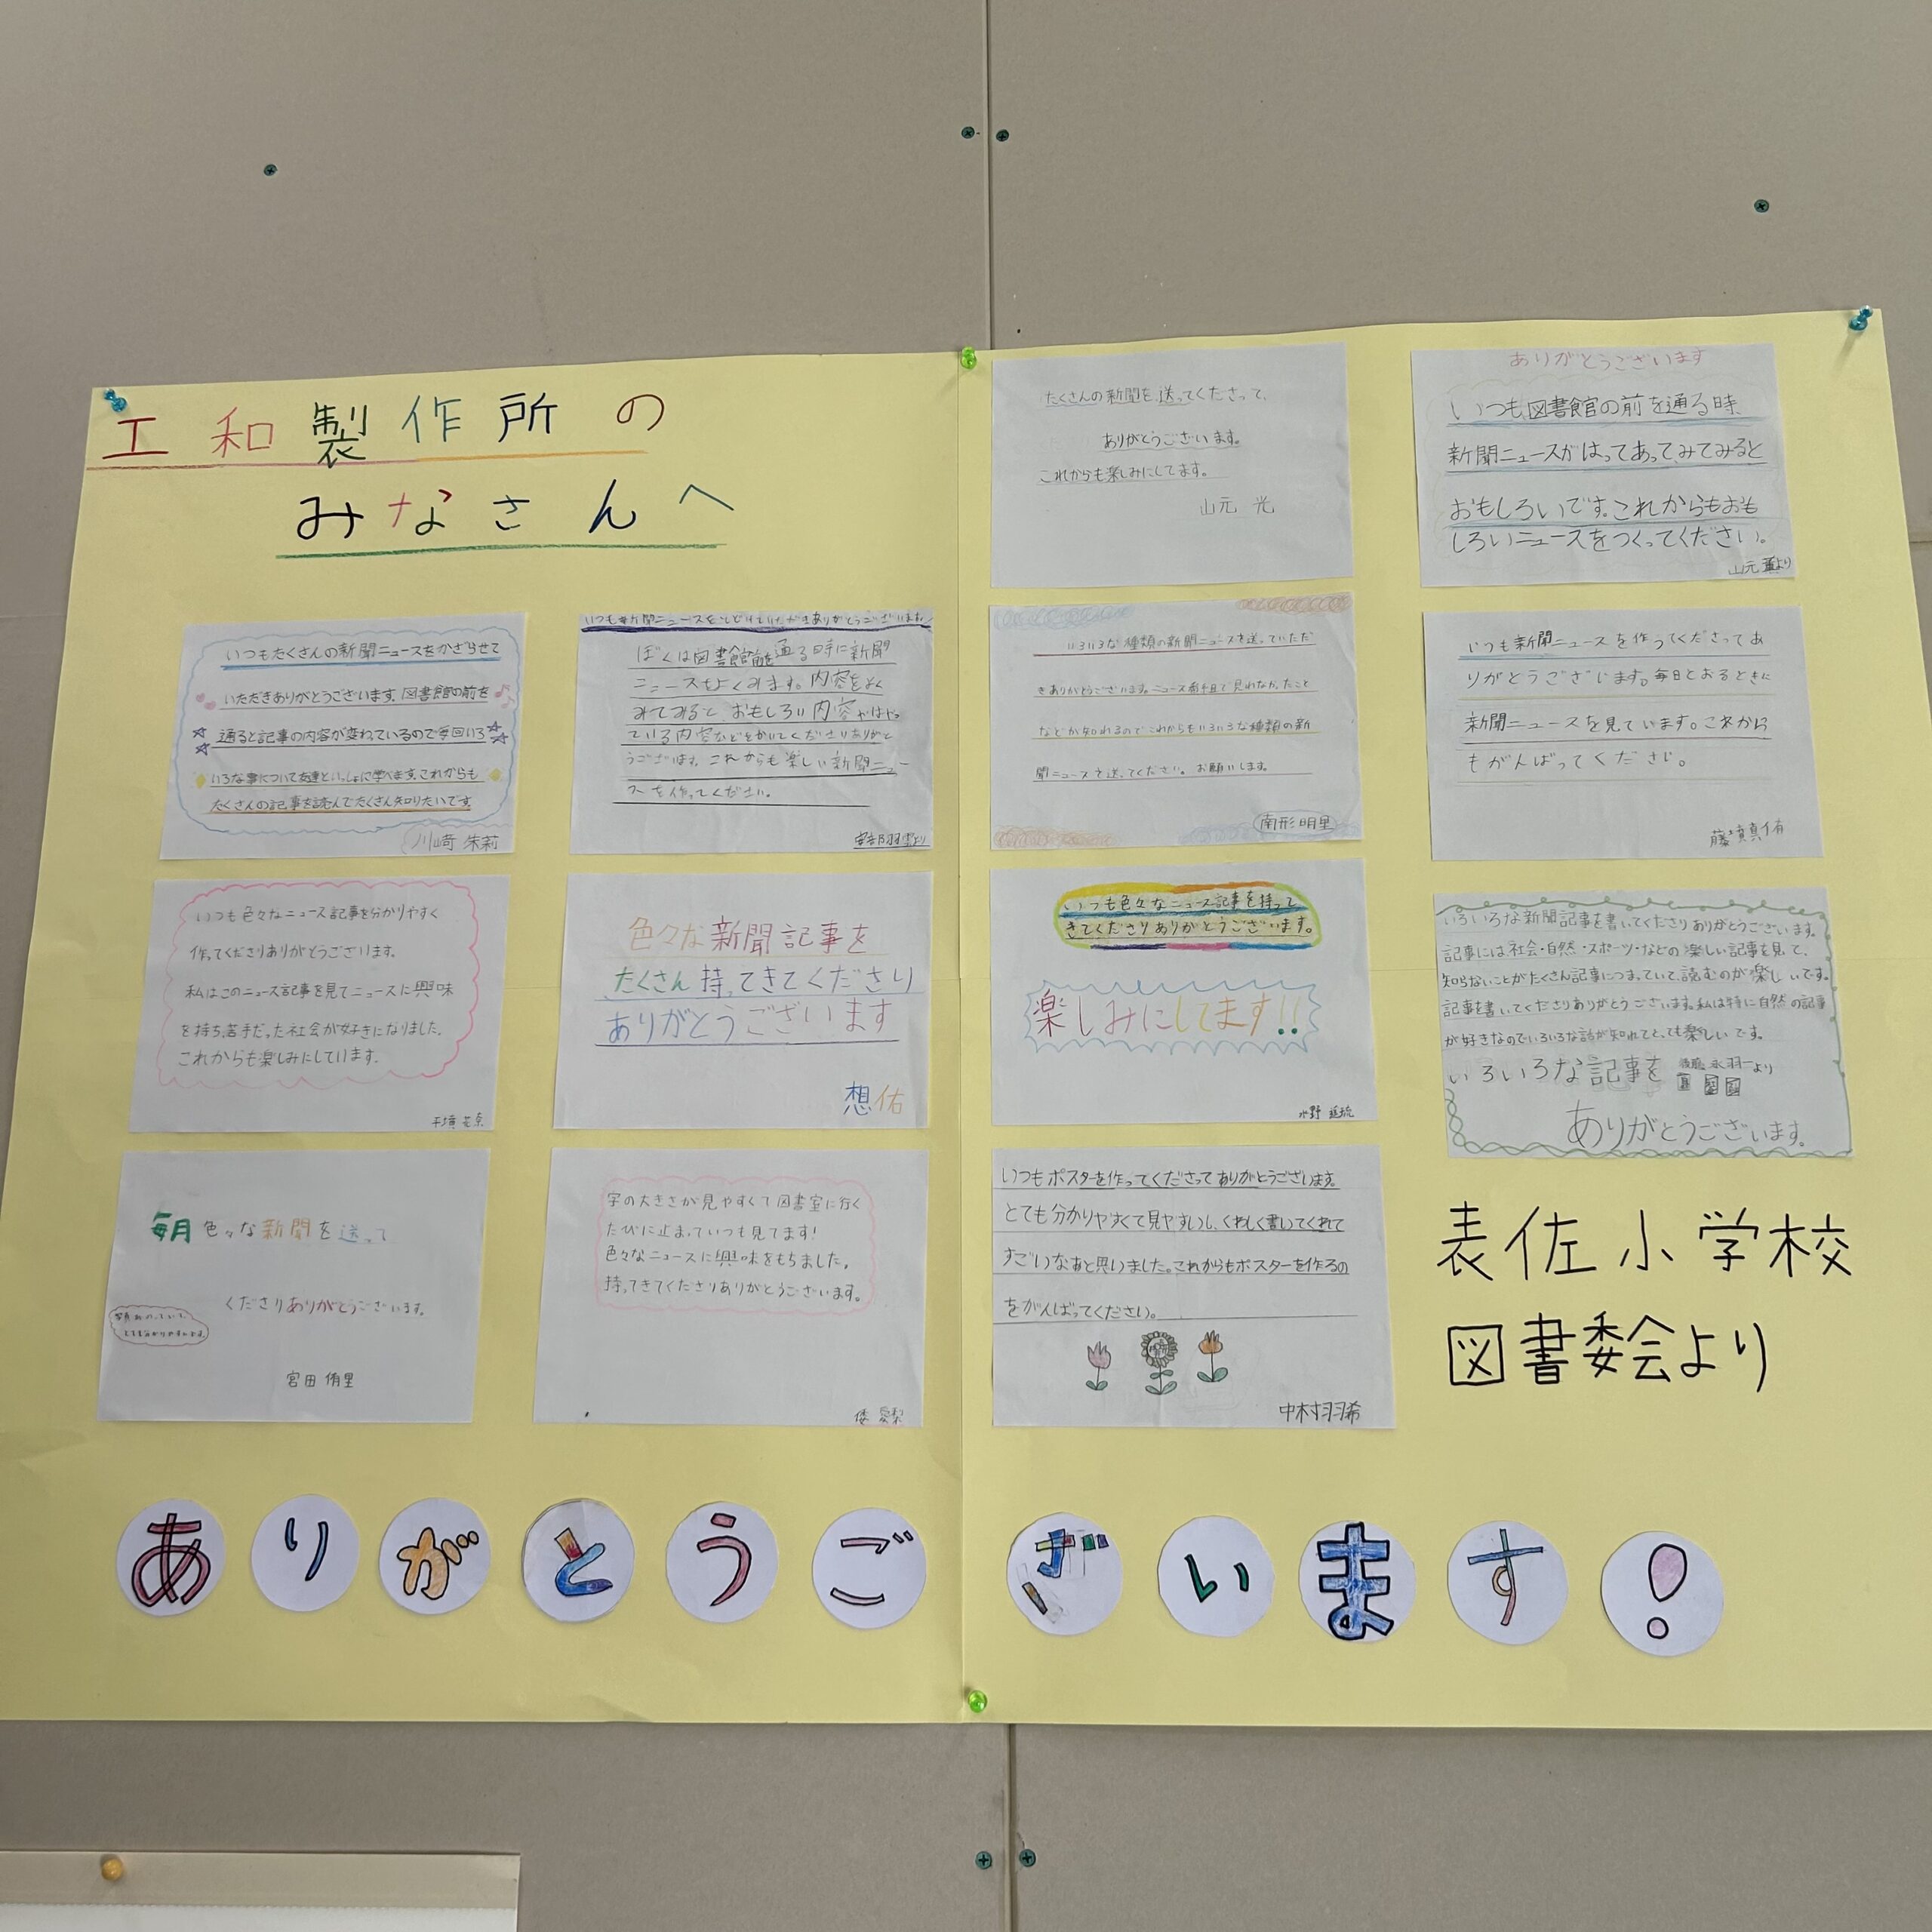 工和製作所の
みなさんへ
いつもたくさんの新聞ニュースをかざらせて
いただきありがとうございます。図書館の前を
通ると記事の内容が変わっているので毎回いろ
いろな事について友達といっしょに学べます。これからも
たくさんの記事を読んでたくさん知りたいです。
川崎 朱莉
いつも新聞ニュースをとどけていただきありがとうございます。
ぼくは図書館前を通る時に新聞
ニュースをよくみます。内容をよく
みてみると、おもしろい内容やはやっ
ている内容などをかいてくださりありがと
うございます。これからも楽しい新聞ニュー
スを作ってください。
いつも色々なニュース記事を分かりやすく
作ってくださりありがとうございます。
私はこのニュース記事を見てニュースに興味
を持ち、苦手だった社会が好きになりました。
これからも楽しみにしています。
色々な新聞記事を
たくさん持ってきてくださり
ありがとうございます
想佑
毎月色々な新聞を送って
くださりありがとうございます。
宮田 侑里
字の大きさが見やすくて図書室に行く
たびに止まっていつも見てます!
色々なニュースに興味をもちました。
持ってきてくださりありがとうございます。
たくさんの新聞を送ってくださって、
ありがとうございます。
これからも楽しみにしてます。
山元 光
ありがとうございます
いつも図書館の前を通る時、
新聞ニュースがはってあってみてみると
おもしろいです。これからもおも
しろいニュースをつくってください。
山元 より
いろいろな種類の新聞ニュースを送っていただ
きありがとうございます。ニュース番組で見れなかったこと
などが知れるのでこれからもいろいろな種類の新
聞ニュースを送ってください。お願いします。
南形 明里
いつも新聞ニュースを作ってくださってあ
りがとうございます。毎日とおるときに
新聞ニュースを見ています。これから
もがんばってください。
いつも色々なニュース記事を持って
きてくださりありがとうございます。
楽しみにしてます!!
水野
いろいろな新聞記事を書いてくださりありがとうございます。
記事には社会・自然・スポーツ・などの楽しい記事を見て、
知らないことがたくさん記事につまっていて、読むのが楽しいです。
記事を書いてくださりありがとうございます。私は特に自然の記事
が好きなのでいろいろな話が知れてとっても楽しいです。
いろいろな記事を
永羽より
ありがとうございます。
いつもポスターを作ってくださってありがとうございます。
とても分かりやすくて見やすいし、くわしく書いてくれて
すごいなぁと思いました。これからもポスターを作るの
をがんばってください。
中村羽希
表佐小学校
図書委会より
ありがとうございます!